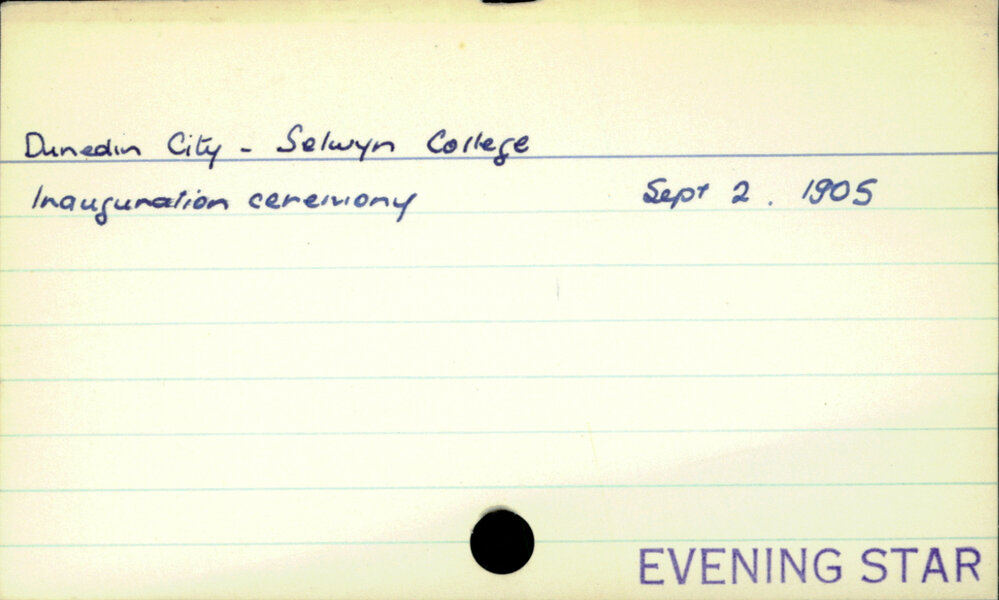 Dunedin City - Selwyn College
Inauguration ceremony Sept 2. 1905
EVENING STAR